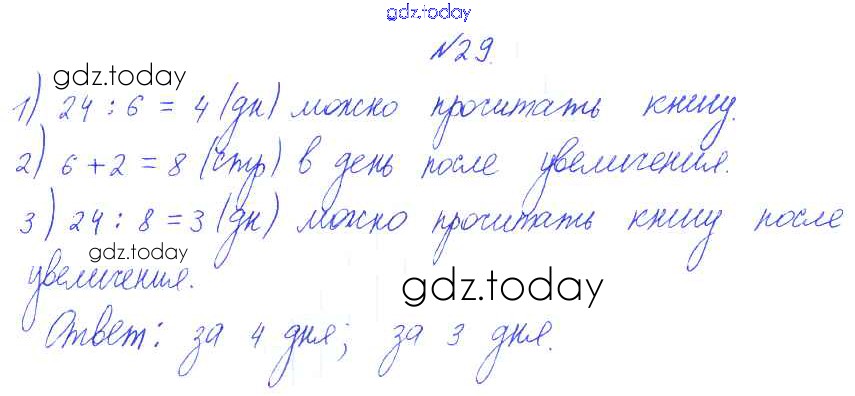 gdz.today
№29.
gdz.today
1) 24 : 6 = 4 (дн) можно прочитать книгу.
2) 6 + 2 = 8 (стр) в день после увеличения.
3) 24 : 8 = 3 (дн) можно прочитать книгу после
gdz.today
увеличения.
gdz.today
Ответ: за 4 дня; за 3 дня.